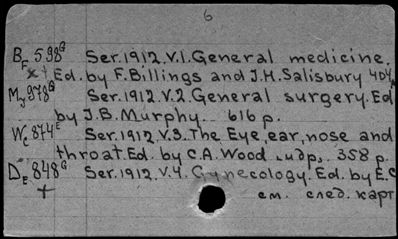 6
B F 598 G Ser.1912.V.1.General medicine.
x + Ed. by F.Billings and J.H.Salisbury 404
M y 978 G Ser.1912.V.2.General surgery.Ed
by J.B.Murphy. 616 p.
W c 874 E Ser.1912.V.3.The Eye, ear, nose and
throat.Ed. by C.A.Wood и др. 358 p.
D E 848 G Ser.1912.V.4.Gynecology.Ed. by E.C
+ см. след. карт